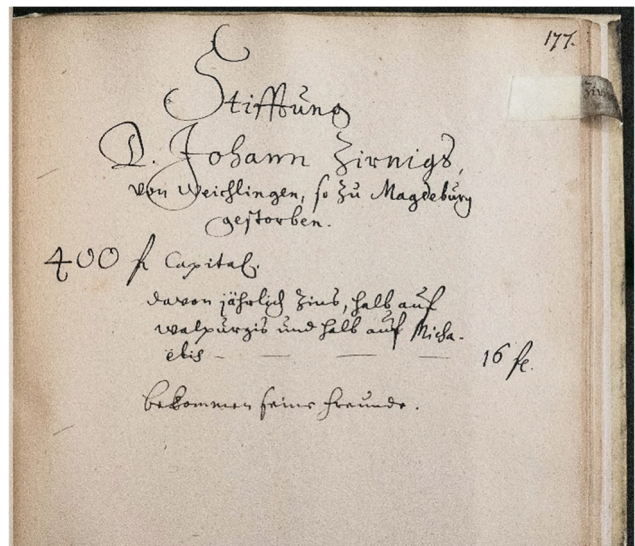 177.
Stifftung
D. Johann Zirnigs,
von Weichlingen, so zu Magdeburg
gestorben.
400 fl Capital.
davon jährlich Zins, halb auf
walpurgis und halb auf Micha-
elis - — — — 16 fl.
bekommen seine freunde.